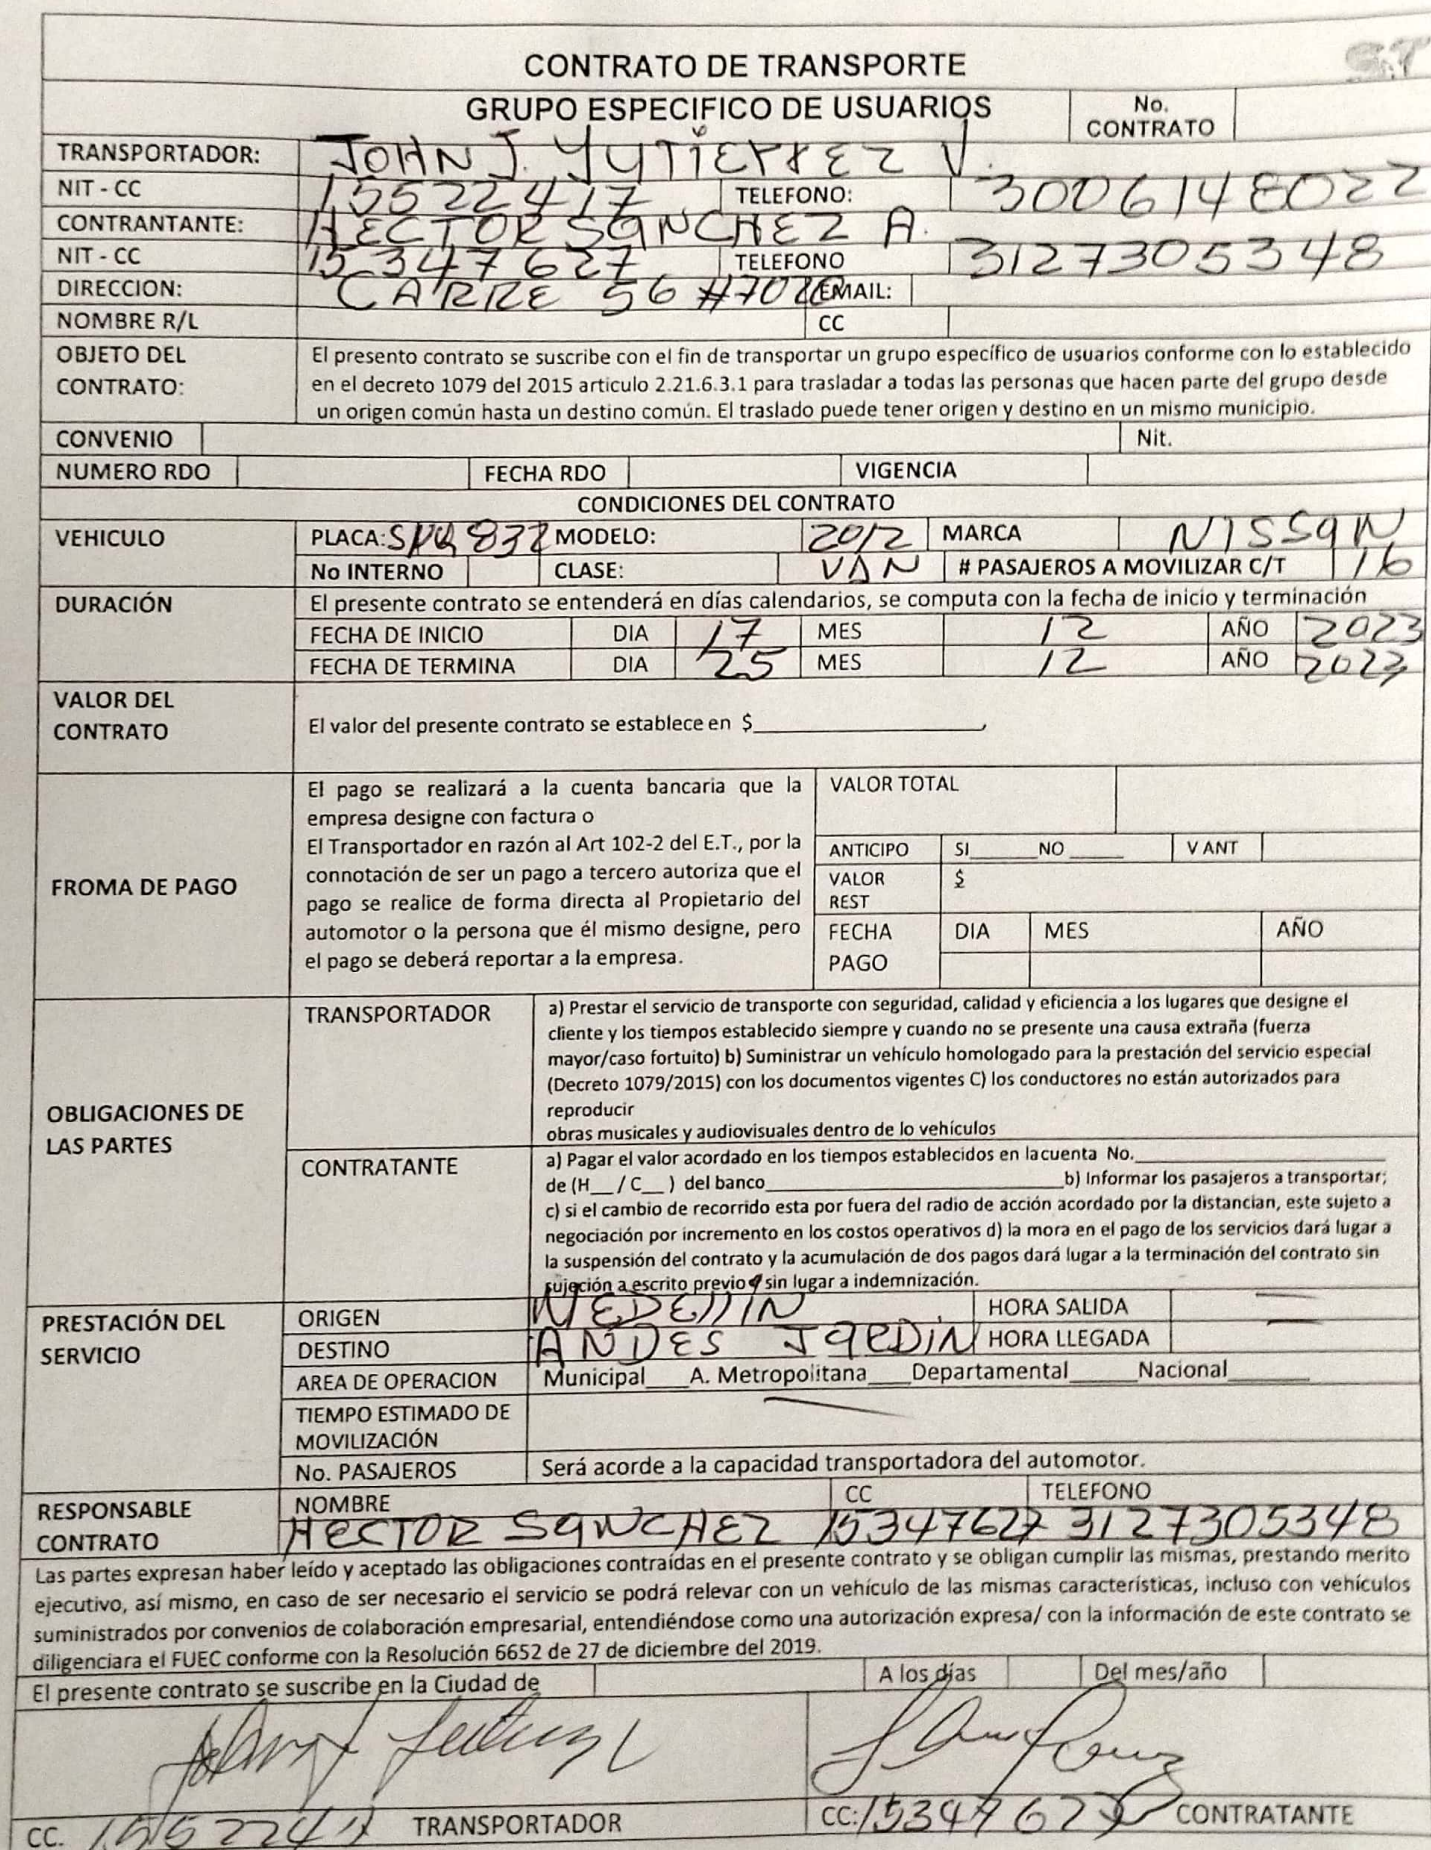 CONTRATO DE TRANSPORTE
GRUPO ESPECIFICO DE USUARIOS
No. CONTRATO
TRANSPORTADOR: JOHN J. YUTIERREZ V.
NIT - CC 15522417 TELEFONO: 3006148022
CONTRANTANTE: HECTOR SANCHEZ A.
NIT - CC 15347627 TELEFONO 3127305348
DIRECCION: CARRE 56 #7020 EMAIL:
NOMBRE R/L CC
OBJETO DEL CONTRATO:
El presento contrato se suscribe con el fin de transportar un grupo específico de usuarios conforme con lo establecido
en el decreto 1079 del 2015 articulo 2.21.6.3.1 para trasladar a todas las personas que hacen parte del grupo desde
un origen común hasta un destino común. El traslado puede tener origen y destino en un mismo municipio.
CONVENIO Nit.
NUMERO RDO FECHA RDO VIGENCIA
CONDICIONES DEL CONTRATO
VEHICULO PLACA: 837 MODELO: 2012 MARCA NISSAN
No INTERNO CLASE: VAN # PASAJEROS A MOVILIZAR C/T 16
DURACIÓN El presente contrato se entenderá en días calendarios, se computa con la fecha de inicio y terminación
FECHA DE INICIO DIA 17 MES 12 AÑO 2023
FECHA DE TERMINA DIA 25 MES 12 AÑO 2023
VALOR DEL CONTRATO
El valor del presente contrato se establece en $
FROMA DE PAGO
El pago se realizará a la cuenta bancaria que la
empresa designe con factura o
El Transportador en razón al Art 102-2 del E.T., por la
connotación de ser un pago a tercero autoriza que el
pago se realice de forma directa al Propietario del
automotor o la persona que él mismo designe, pero
el pago se deberá reportar a la empresa.
VALOR TOTAL
ANTICIPO SI NO V ANT
VALOR REST $
FECHA PAGO DIA MES AÑO
OBLIGACIONES DE LAS PARTES
TRANSPORTADOR
a) Prestar el servicio de transporte con seguridad, calidad y eficiencia a los lugares que designe el
cliente y los tiempos establecido siempre y cuando no se presente una causa extraña (fuerza
mayor/caso fortuito) b) Suministrar un vehículo homologado para la prestación del servicio especial
(Decreto 1079/2015) con los documentos vigentes C) los conductores no están autorizados para
reproducir
obras musicales y audiovisuales dentro de lo vehículos
CONTRATANTE
a) Pagar el valor acordado en los tiempos establecidos en lacuenta No.
de (H__ / C__ ) del banco b) Informar los pasajeros a transportar;
c) si el cambio de recorrido esta por fuera del radio de acción acordado por la distancian, este sujeto a
negociación por incremento en los costos operativos d) la mora en el pago de los servicios dará lugar a
la suspensión del contrato y la acumulación de dos pagos dará lugar a la terminación del contrato sin
sujeción a escrito previo y sin lugar a indemnización.
PRESTACIÓN DEL SERVICIO
ORIGEN MEDELLIN HORA SALIDA
DESTINO ANDES JARDIN HORA LLEGADA
AREA DE OPERACION Municipal___A. Metropolitana___Departamental____Nacional
TIEMPO ESTIMADO DE
MOVILIZACIÓN
No. PASAJEROS Será acorde a la capacidad transportadora del automotor.
RESPONSABLE CONTRATO
NOMBRE CC TELEFONO
HECTOR SANCHEZ 15347627 3127305348
Las partes expresan haber leído y aceptado las obligaciones contraídas en el presente contrato y se obligan cumplir las mismas, prestando merito
ejecutivo, así mismo, en caso de ser necesario el servicio se podrá relevar con un vehículo de las mismas características, incluso con vehículos
suministrados por convenios de colaboración empresarial, entendiéndose como una autorización expresa/ con la información de este contrato se
diligenciara el FUEC conforme con la Resolución 6652 de 27 de diciembre del 2019.
El presente contrato se suscribe en la Ciudad de A los días Del mes/año
CC. 15522417 TRANSPORTADOR CC: 15347627 CONTRATANTE